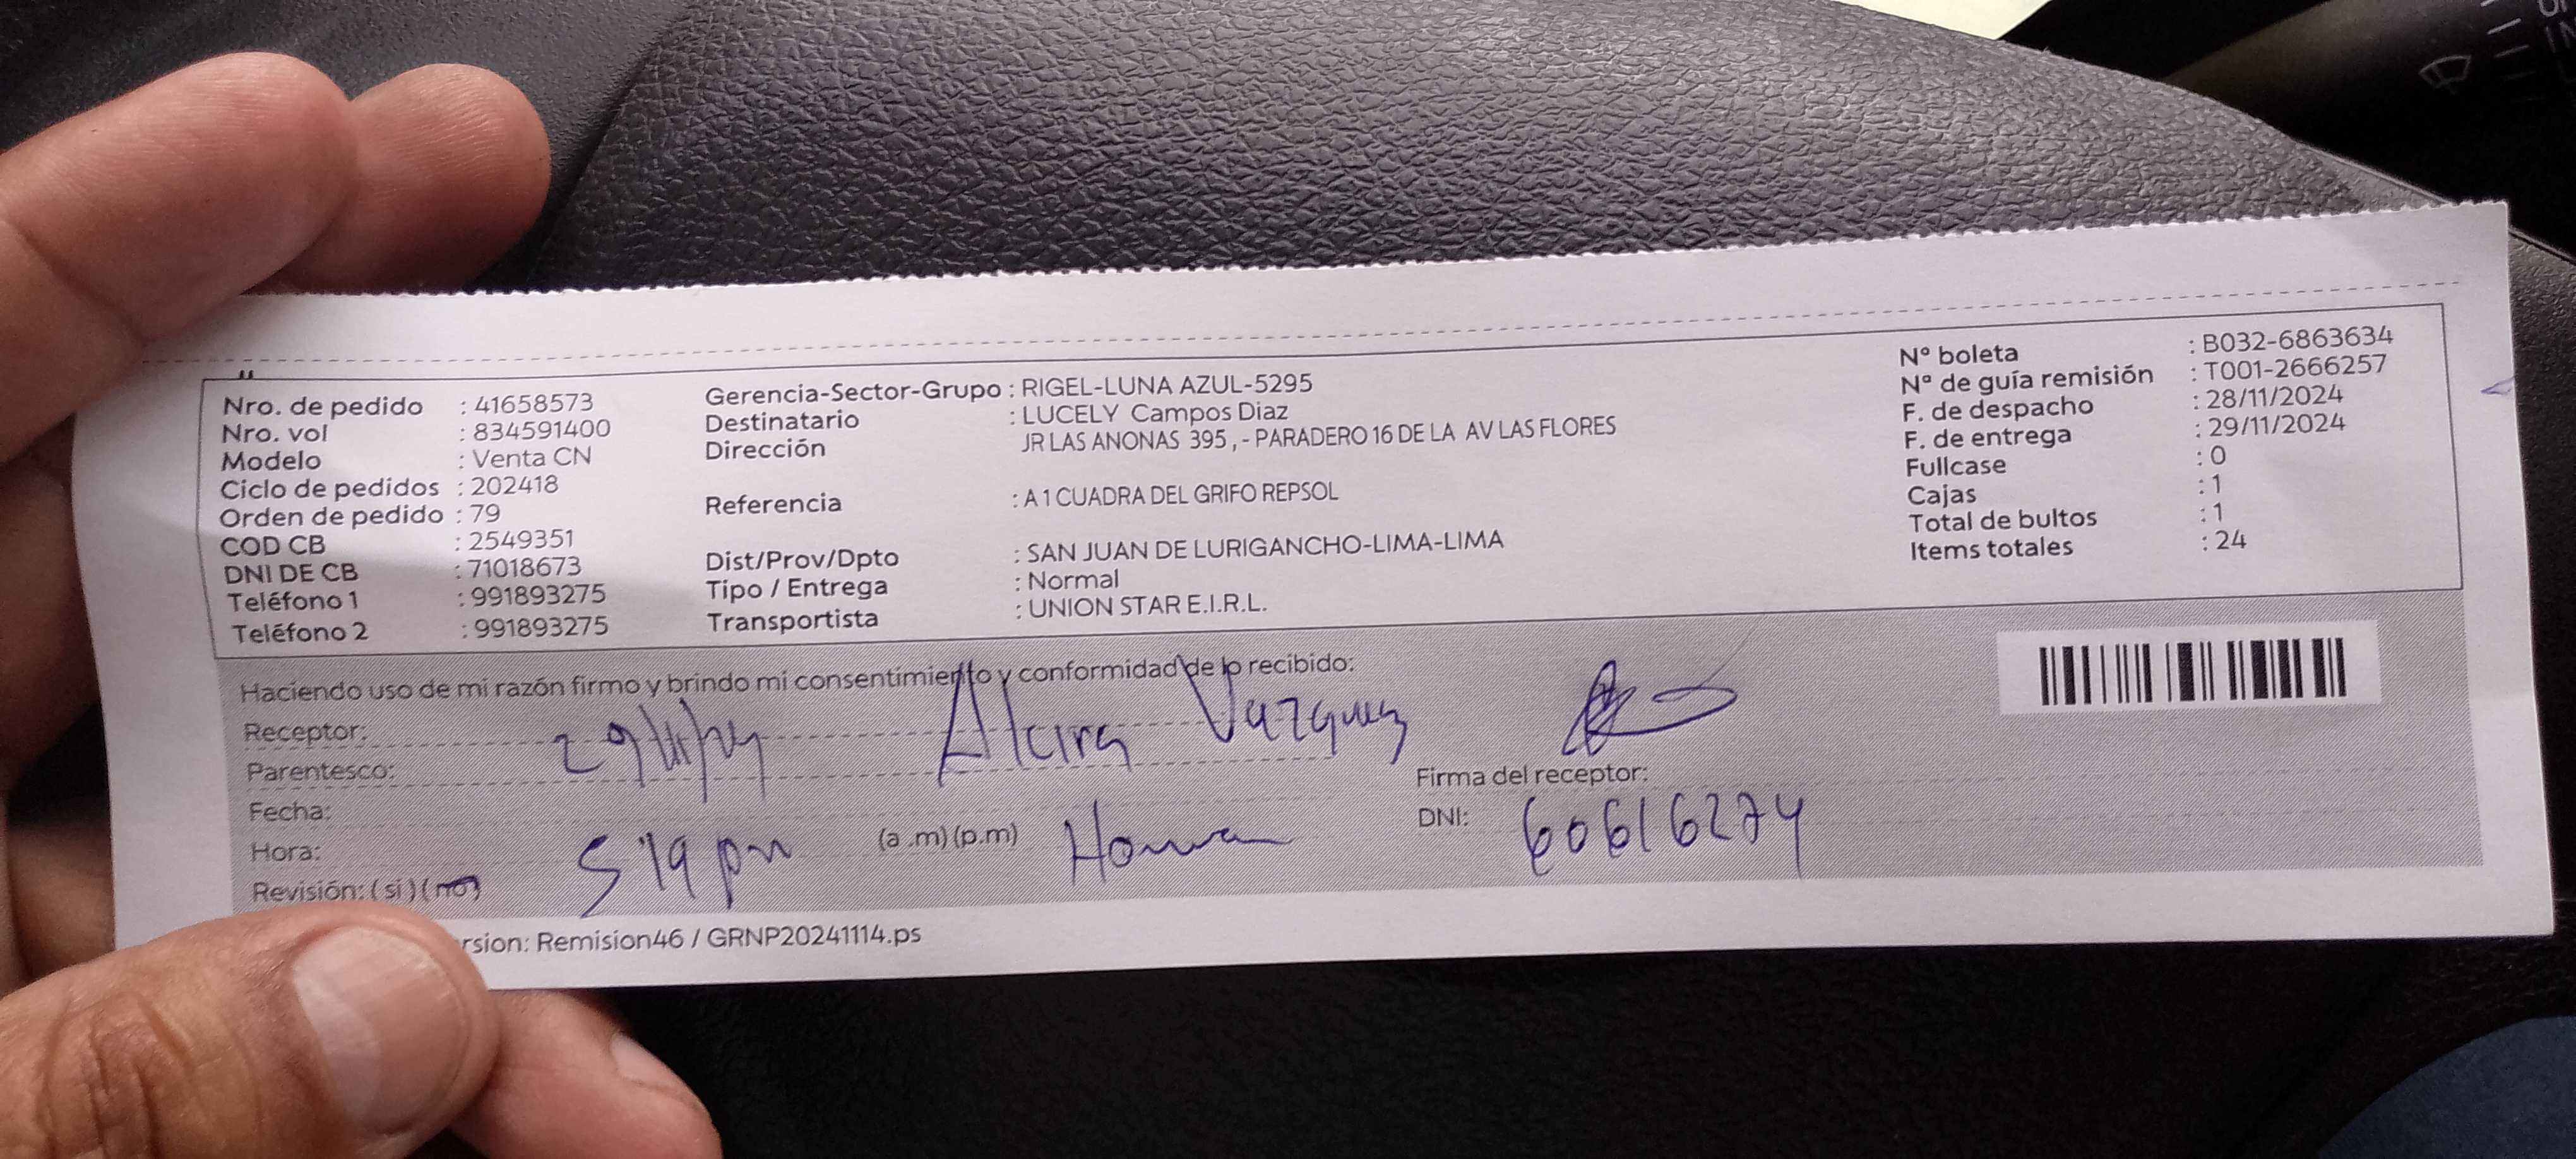 Nro. de pedido : 41658573
Nro. vol : 834591400
Modelo : Venta CN
Ciclo de pedidos : 202418
Orden de pedido : 79
COD CB : 2549351
DNI DE CB : 71018673
Teléfono 1 : 991893275
Teléfono 2 : 991893275
Gerencia-Sector-Grupo : RIGEL-LUNA AZUL-5295
Destinatario : LUCELY Campos Diaz
Dirección JR LAS ANONAS 395 , - PARADERO 16 DE LA AV LAS FLORES
Referencia : A 1 CUADRA DEL GRIFO REPSOL
Dist/Prov/Dpto : SAN JUAN DE LURIGANCHO-LIMA-LIMA
Tipo / Entrega : Normal
Transportista : UNION STAR E.I.R.L.
Nº boleta : B032-6863634
Nº de guía remisión : T001-2666257
F. de despacho : 28/11/2024
F. de entrega : 29/11/2024
Fullcase : 0
Cajas : 1
Total de bultos : 1
Items totales : 24
Haciendo uso de mi razón firmo y brindo mi consentimiento y conformidad de lo recibido:
Receptor: Alcira Vazquez
Parentesco:
Firma del receptor:
Fecha:
Hora: 519 pm (a .m) (p.m)
DNI: 60616274
Revisión: ( si ) ( no )
rsion: Remision46 / GRNP20241114.ps